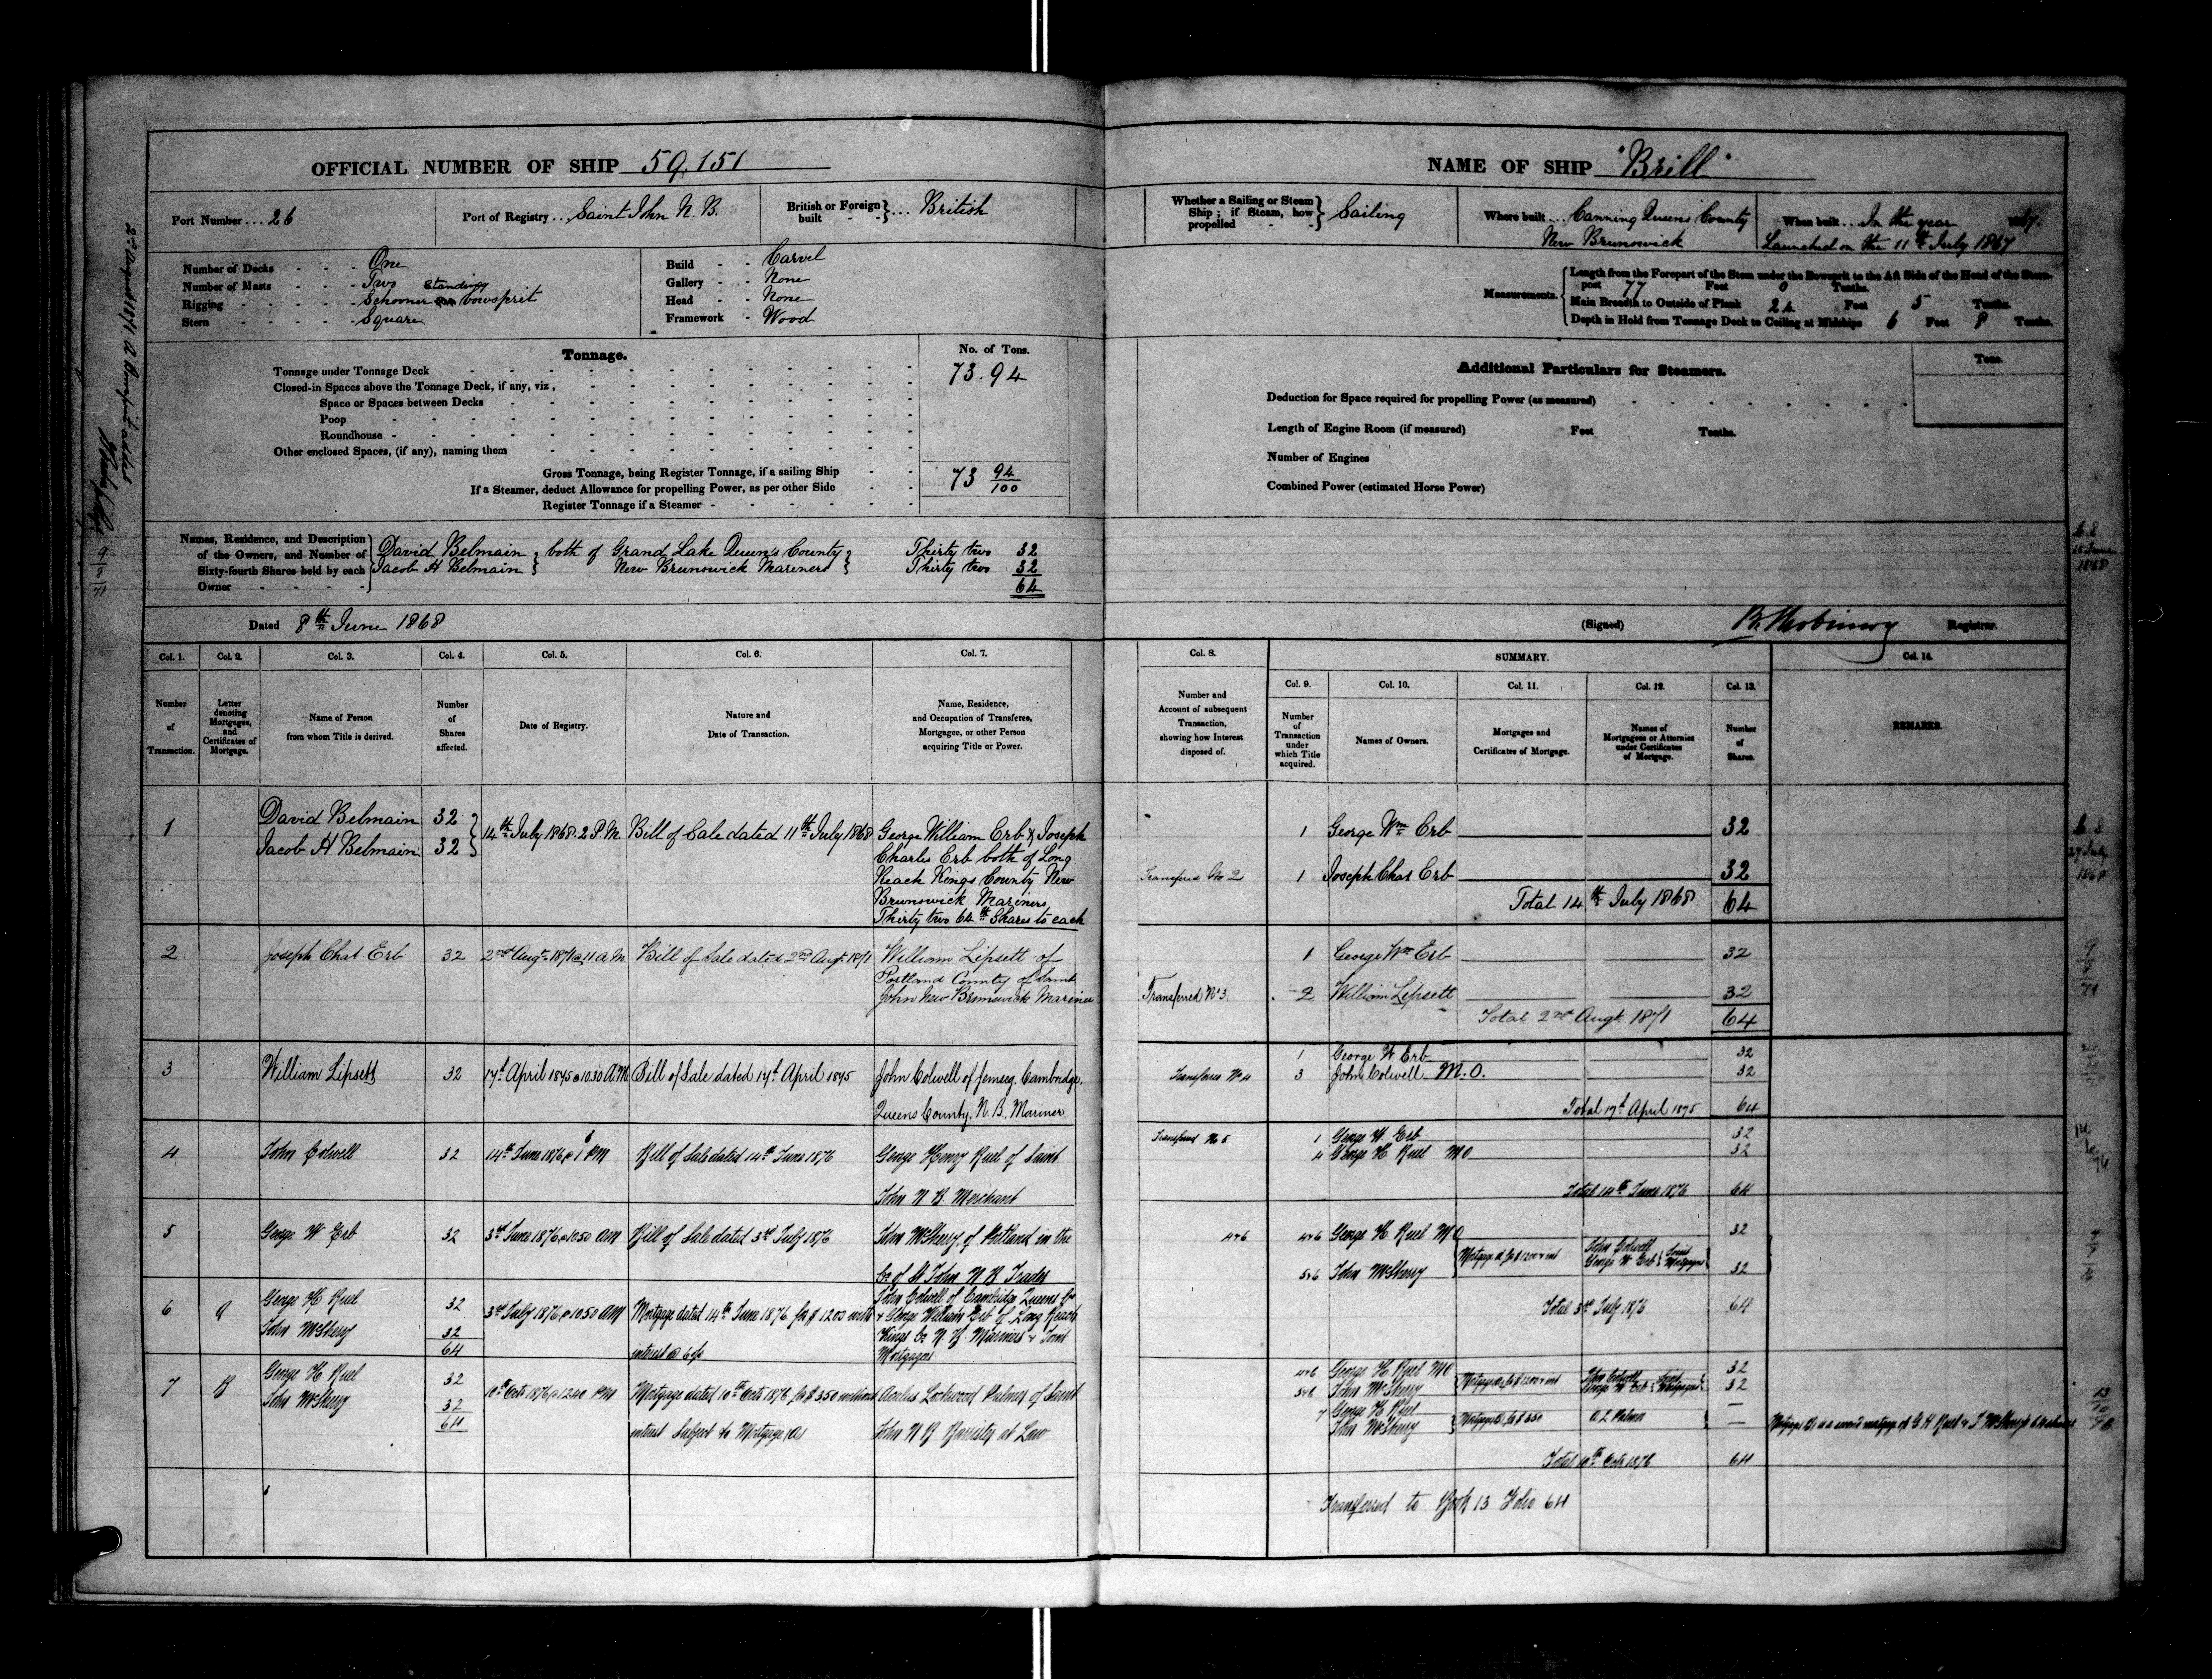 OFFICIAL NUMBER OF SHIP 59,151
Port Number ... 26
Port of Registry ... Saint John N. B.
British or Foreign built } ... British
Number of Decks - - - One
Number of Masts - - - Two
Rigging - - - Schooner standing bowsprit
Stern - - - Square
Build - - Carvel
Gallery - - None
Head - - None
Framework - Wood
Tonnage.
No. of Tons.
Tonnage under Tonnage Deck 73.94
Closed-in Spaces above the Tonnage Deck, if any, viz,
Space or Spaces between Decks
Poop
Roundhouse
Other enclosed Spaces, (if any), naming them
Gross Tonnage, being Register Tonnage, if a sailing Ship 73 94/100
If a Steamer, deduct Allowance for propelling Power, as per other Side
Register Tonnage if a Steamer
Names, Residence, and Description of the Owners, and Number of Sixty-fourth Shares held by each Owner
David Belmain } both of Grand Lake Queen's County } Thirty two 32
Jacob H Belmain } New Brunswick Mariners } Thirty two 32
64
Dated 8th June 1868
Col. 1. Number of Transaction.
Col. 2. Letter denoting Mortgages, and Certificates of Mortgage.
Col. 3. Name of Person from whom Title is derived.
Col. 4. Number of Shares affected.
Col. 5. Date of Registry.
Col. 6. Nature and Date of Transaction.
Col. 7. Name, Residence, and Occupation of Transferee, Mortgagee, or other Person acquiring Title or Power.
1 David Belmain 32 } 14th July 1868. 2 P.M. Bill of Sale dated 11th July 1868 George William Erb & Joseph
Jacob H Belmain 32 } Charles Erb both of Long
Reach Kings County New
Brunswick Mariners
Thirty two 64th Shares to each
2 Joseph Chas Erb 32 2nd Augt 1871 @ 11 A.M. Bill of Sale dated 2nd Augt 1871 William Lipsett of
Portland County of Saint
John New Brunswick Mariner
3 William Lipsett 32 17th April 1875 @ 10.30 A.M Bill of Sale dated 17th April 1875 John Colwell of Jemseg. Cambridge.
Queens County. N. B. Mariner
4 John Colwell 32 14th June 1876 @ 1 PM Bill of Sale dated 14th June 1876 George Henry Ruel of Saint
John N B. Merchant
5 George W Erb 32 3rd June 1876 @ 10.50 AM Bill of Sale dated 3rd July 1876 John McSherry of Portland in the
Co of St John N B Trader
6 a George H Ruel 32 3rd July 1876 @ 10.50 AM Mortgage dated 14th June 1876 for $ 1200 with John Colwell of Cambridge Queens Co
John McSherry 32 & George William Erb of Long Reach
64 interest @ 6 p Kings Co N. B. Mariners & Joint
Mortgagees
7 B George H Ruel 32 10th Octr 1876 @ 12.40 PM Mortgage dated 10th Octr 1876 for $ 350 without Acalus Lockwood Palmer of Saint
John McSherry 32
64 interest Subject to Mortgage (A) John N B Barrister at Law
NAME OF SHIP "Brill"
Whether a Sailing or Steam Ship; if Steam, how propelled } Sailing
Where built ... Canning Queens County
New Brunswick
When built ... In the year 1867.
Launched on the 11th July 1867
Measurements.
Length from the Forepart of the Stem under the Bowsprit to the Aft Side of the Head of the Stern-
post 77 Feet 0 Tenths.
Main Breadth to Outside of Plank 24 Feet 5 Tenths.
Depth in Hold from Tonnage Deck to Ceiling at Midships 6 Feet 8 Tenths.
Additional Particulars for Steamers.
Tons.
Deduction for Space required for propelling Power (as measured)
Length of Engine Room (if measured) Feet Tenths.
Number of Engines
Combined Power (estimated Horse Power)
(Signed) Registrar.
Col. 8. Number and Account of subsequent Transaction, showing how Interest disposed of.
SUMMARY.
Col. 9. Number of Transaction under which Title acquired.
Col. 10. Names of Owners.
Col. 11. Mortgages and Certificates of Mortgage.
Col. 12. Names of Mortgagees or Attornies under Certificates of Mortgage.
Col. 13. Number of Shares.
Col. 14. REMARKS.
1 George Wm Erb 32
Transferred No 2 1 Joseph Chas Erb 32
Total 14th July 1868 64
1 George Wm Erb 32
Transferred No 3. 2 William Lipsett 32
Total 2nd Augt 1871 64
1 George W Erb 32
Transferred No 4 3 John Colwell M.O. 32
Total 17th April 1875 64
Transferred No 5 1 George W Erb 32
4 George H Ruel M O 32
Total 14th June 1876 64
4&6 4&6 George H Ruel M O 32
Mortgage A for $ 1200 & int John Colwell George W Erb } Joint Mortgagees
5&6 John McSherry 32
Total 3rd July 1876 64
4&6 George H Ruel M O 32
5&6 John McSherry Mortgage A for $ 1200 & int John Colwell George W Erb } Joint Mortgagees 32
7 George H Ruel —
John McSherry Mortgage B for $ 350 A L Palmer —
Mortgage B is a second mortgage of G H Ruel & J McSherry's
Total 10th Octr 1876 64
Transferred to Book 13 Folio 64